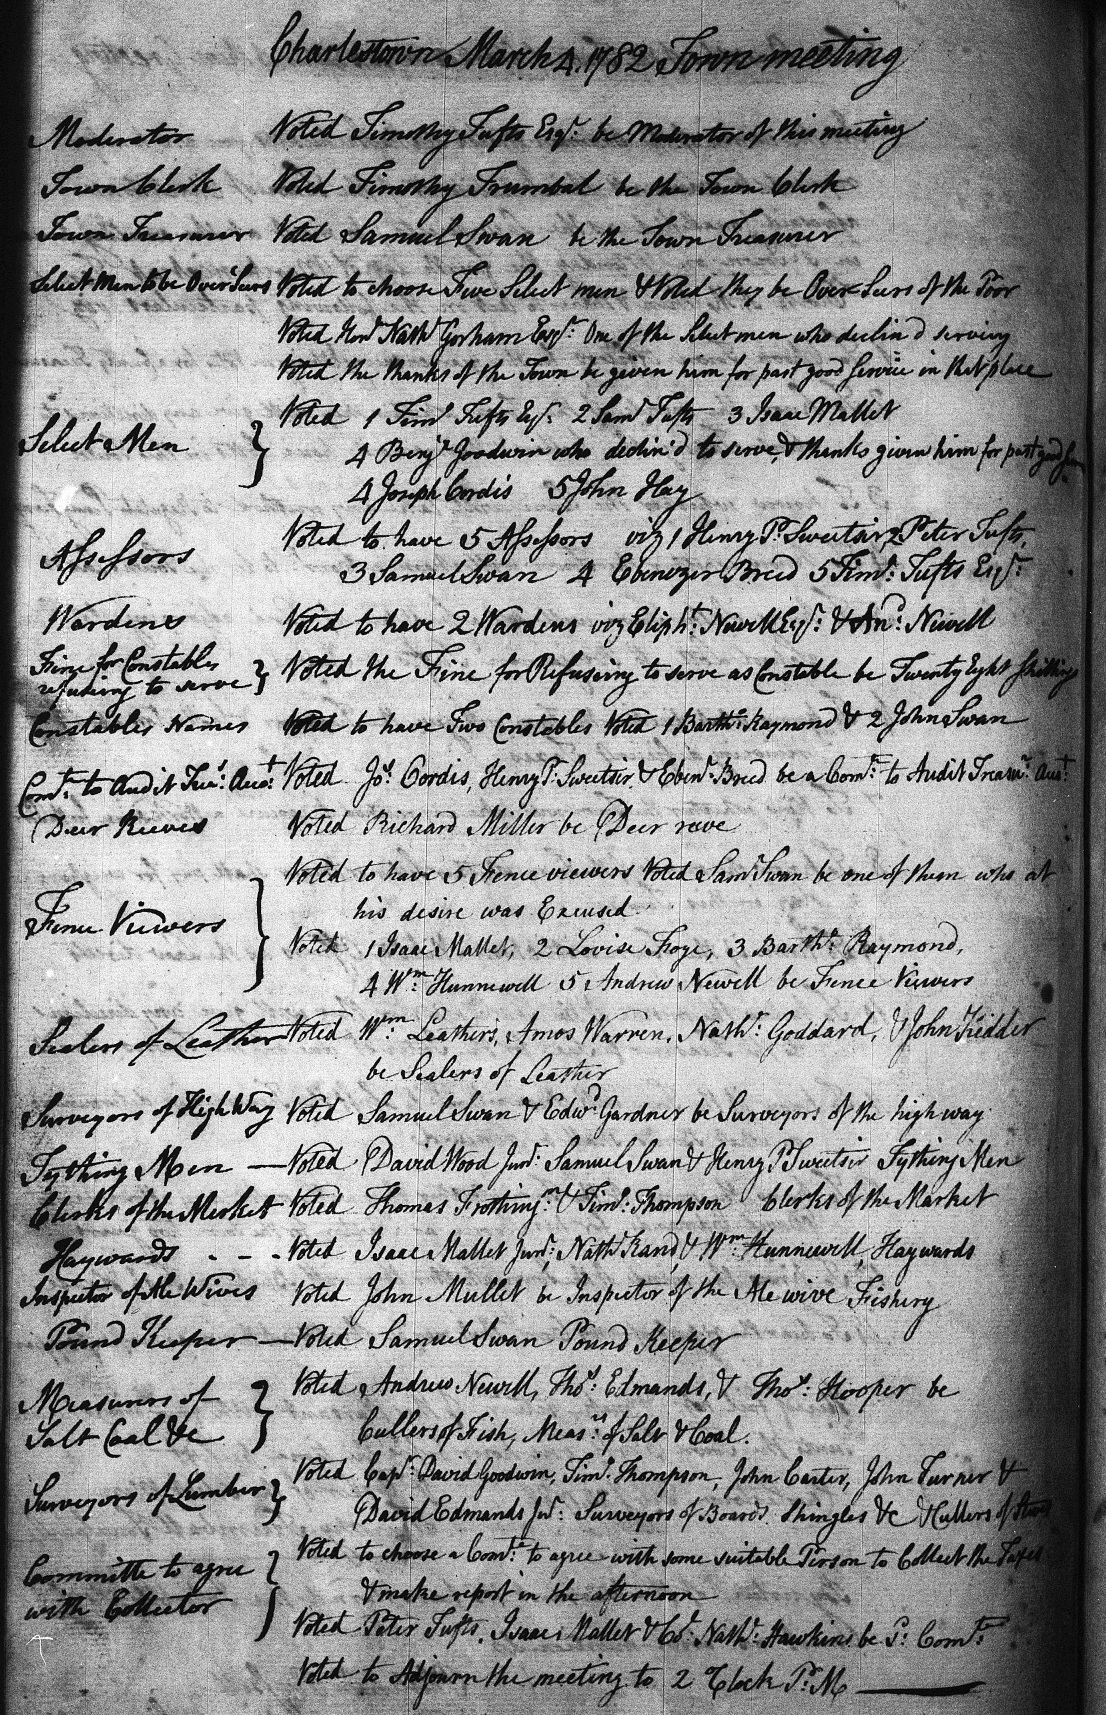 Charlestown March 4. 1782 Town meeting
Moderator Voted Timothy Tufts Esqr. be Moderator of this meeting
Town Clerk Voted Timothy Trumbal be the Town Clerk
Town Treasurer Voted Samuel Swan be the Town Treasurer
Select Men to be OverSeers Voted to choose Five Select men & Voted they be OverSeers of the Poor
Voted Hond. Nathl. Gorham Esqr. One of the Select men who declin'd serving
Voted the thanks of the Town be given him for past good Service in that place
Select Men } Voted 1 Timo. Tufts Esqr. 2 Saml. Tufts 3 Isaac Mallet
4 Benja. Goodwin who declin'd to serve, & thanks given him for past good
4 Joseph Cordis 5 John Hay
Assessors Voted to have 5 Assessors viz 1 Henry P. Sweetsir, 2 Peter Tufts,
3 Samuel Swan 4 Ebenezer Breed 5 Timo. Tufts Esqr.
Wardens Voted to have 2 Wardens viz Eliph.t Newell Esqr. & And. Newell
Fine for Constables refusing to serve } Voted the Fine for Refusing to serve as Constable be Twenty Eight Shillings
Constables Names Voted to have Two Constables Voted 1 Bartho. Raymond & 2 John Swan
Comte. to Audit Treasr. Accot. Voted Jos. Cordis, Henry P. Sweetsir, & Ebenr. Breed be a Comte. to Audit Treasurs. Accot.
Deer Reeves Voted Richard Miller be Deer reve
Fence Viewers } Voted to have 5 Fence viewers Voted Saml. Swan be one of them who at
his desire was Excused
Voted 1 Isaac Mallet, 2 Lovise Foye, 3 Barthw. Raymond,
4 Wm. Hunnewell 5 Andrew Newell be Fence Viewers
Sealers of Leather Voted Wm. Leathers, Amos Warren, Nathl. Goddard, & John Kidder
be Sealers of Leather
Surveyors of High Way Voted Samuel Swan & Edwd. Gardner be Surveyors of the high way
Tything Men — Voted David Wood Junr. Samuel Swan & Henry P Sweetsir Tything Men
Clerks of the Market Voted Thomas Frothingm. & Timo. Thompson Clerks of the Market
Haywards - - - Voted Isaac Mallet Junr., Nathl. Rand, & Wm. Hunnewell, Haywards
Inspector of Ale Wives Voted John Mullet be Inspector of the Ale wive Fishery
Pound Keeper — Voted Samuel Swan Pound Keeper
Measurers of Salt Coal &c } Voted Andrew Newell, Thos. Edmands, & Thos. Hooper be
Cullers of Fish, Measrs. of Salt & Coal.
Surveyors of Lumber } Voted Capt. David Goodwin, Timo. Thompson, John Carter, John Turner &
David Edmands Jur. Surveyors of Boards Shingles &c & Cullers of
Committe to agree with Collector } Voted to choose a Comte. to agree with some suitable Person to Collect the Taxes
& make report in the afternoon
Voted Peter Tufts, Isaac Mallet & Co. Nathl. Hawkins be Sd. Comte.
Voted to Adjourn the meeting to 2 oClock P. M